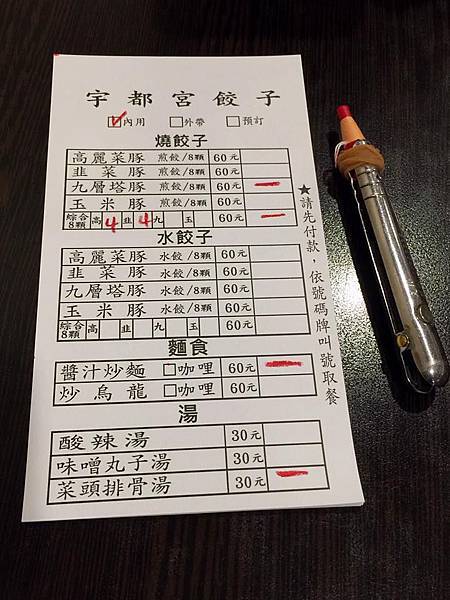 宇都宮餃子
☑內用 □外帶 □預訂
燒餃子
高麗菜豚 煎餃/8顆 60元
韭菜豚 煎餃/8顆 60元
九層塔豚 煎餃/8顆 60元 一
玉米豚 煎餃/8顆 60元
綜合8顆 高 4 韭 4 九 玉 60元 一
水餃子
高麗菜豚 水餃/8顆 60元
韭菜豚 水餃/8顆 60元
九層塔豚 水餃/8顆 60元
玉米豚 水餃/8顆 60元
綜合8顆 高 韭 九 玉 60元
麵食
醬汁炒麵 □咖哩 60元 一
炒烏龍 □咖哩 60元
湯
酸辣湯 30元
味噌丸子湯 30元
菜頭排骨湯 30元 一
★請先付款，依號碼牌叫號取餐